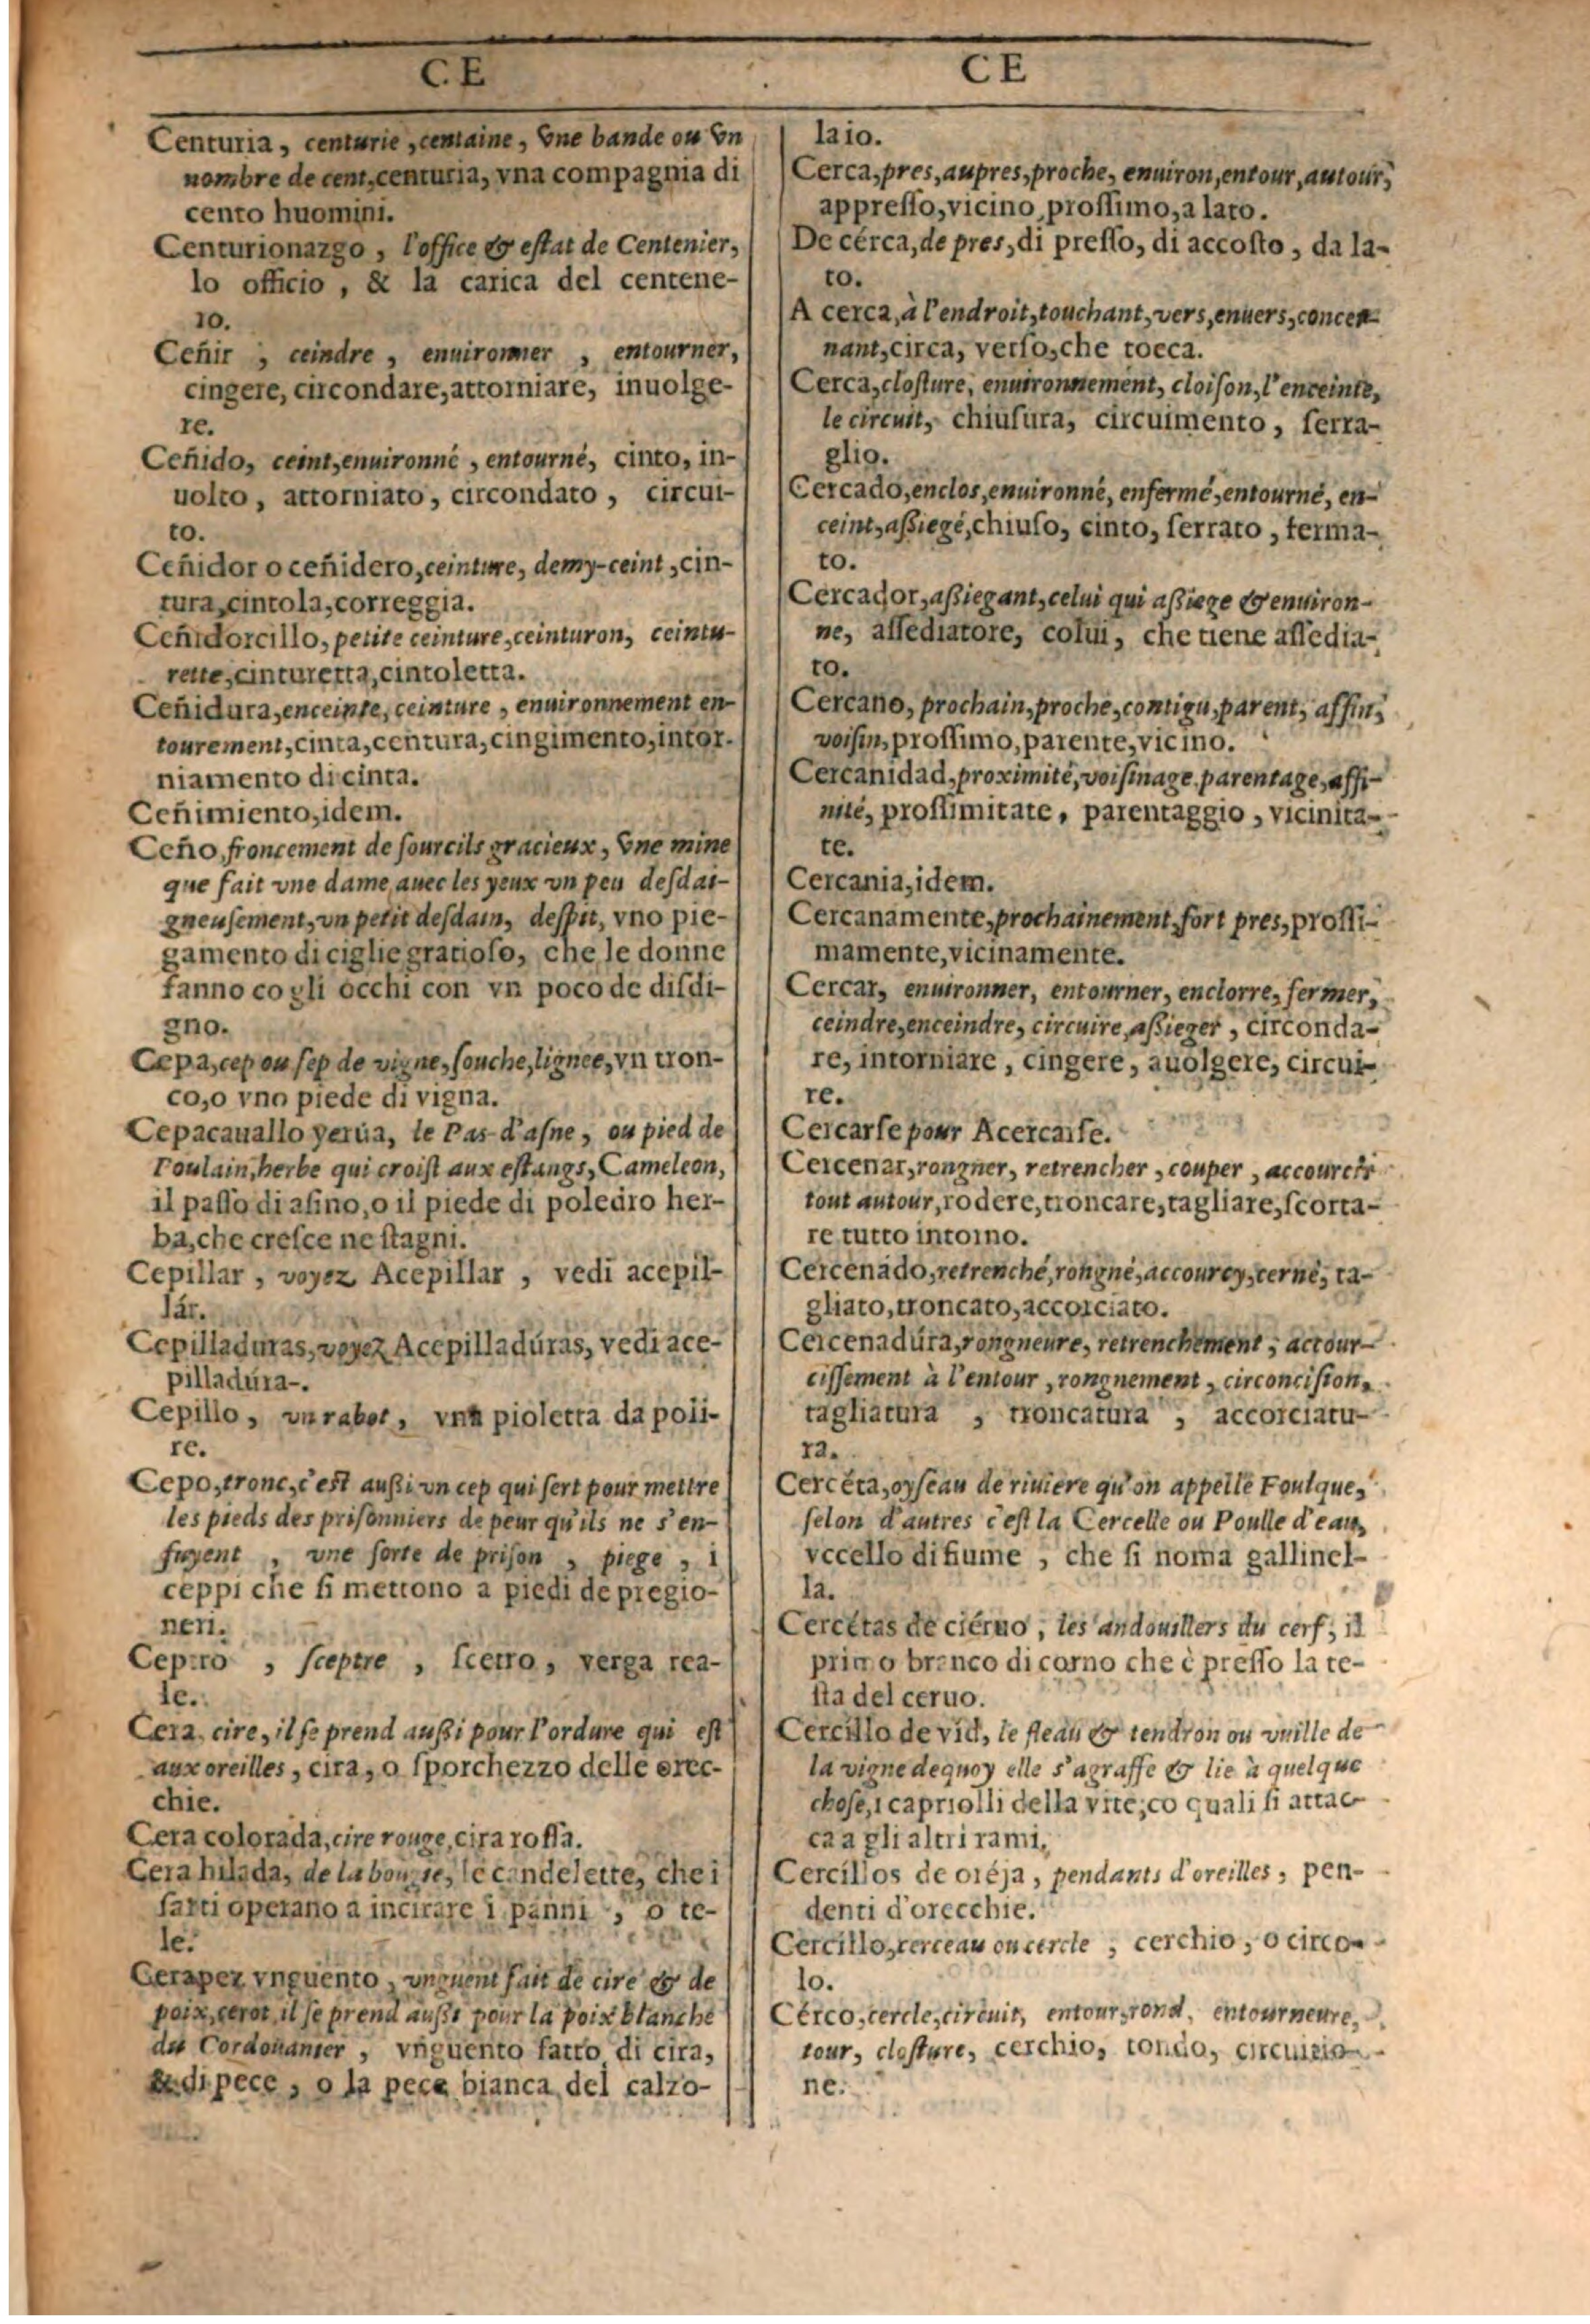 CE
Centuria, centurie, centaine, vne bande ou vn
nombre de cent, centuria, vna compagnia di
cento huomini.
Centurionazgo, l'office & estat de Centenier,
lo officio, & la carica del centene-
ro.
Ceñir, ceindre, enuironner, entourner,
cingere, circondare, attorniare, inuolge-
re.
Ceñido, ceint, enuironné, entourné, cinto, in-
uolto, attorniato, circondato, circui-
to.
Ceñidor o ceñidero, ceinture, demy-ceint, cin-
tura, cintola, correggia.
Ceñidorcillo, petite ceinture, ceinturon, ceintu-
rette, cinturetta, cintoletta.
Ceñidura, enceinte, ceinture, enuironnement en-
tourement, cinta, centura, cingimento, intor-
niamento di cinta.
Ceñimiento, idem.
Ceño, froncement de ſourcils gracieux, vne mine
que fait vne dame auec les yeux vn peu deſdai-
gneuſement, vn petit deſdain, deſpit, vno pie-
gamento di ciglie gratioſo, che le donne
fanno co gli occhi con vn poco de diſdi-
gno.
Cepa, cep ou ſep de vigne, ſouche, lignee, vn tron-
co, o vno piede di vigna.
Cepacauallo yerúa, le Pas-d'aſne, ou pied de
Poulain, herbe qui croiſt aux eſtangs, Cameleon,
il paſſo di aſino, o il piede di poledro her-
ba, che creſce ne ſtagni.
Cepillar, voyez Acepillar, vedi acepil-
lár.
Cepilladuras, voyez Acepilladúras, vedi ace-
pilladúra-.
Cepillo, vn rabot, vna pioletta da poli-
re.
Cepo, tronc, c'eſt auſſi vn cep qui ſert pour mettre
les pieds des priſonniers de peur qu'ils ne s'en-
fuyent, vne ſorte de priſon, piege, i
ceppi che ſi mettono a piedi de pregio-
neri.
Ceptro, ſceptre, ſcetro, verga rea-
le.
Cera, cire, il ſe prend auſſi pour l'ordure qui eſt
aux oreilles, cira, o ſporchezzo delle orec-
chie.
Cera colorada, cire rouge, cira roſſa.
Cera hilada, de la bougie, le candelette, che i
ſarti operano a incirare i panni, o te-
le.
Cerapez vnguento, vnguent fait de cire & de
poix, cerot, il ſe prend auſſi pour la poix blanche
du Cordoüanier, vnguento fatto di cira,
& di pece, o la pece bianca del calzo-
CE
laio.
Cerca, pres, aupres, proche, enuiron, entour, autour,
appreſſo, vicino, proſſimo, a lato.
De cérca, de pres, di preſſo, di accoſto, da la-
to.
A cerca, à l'endroit, touchant, vers, enuers, concer-
nant, circa, verſo, che tocca.
Cerca, cloſture, enuironnement, cloiſon, l'enceinte,
le circuit, chiuſura, circuimento, ſerra-
glio.
Cercado, enclos, enuironné, enfermé, entourné, en-
ceint, aſſiegé, chiuſo, cinto, ſerrato, ferma-
to.
Cercador, aſſiegant, celui qui aſſiege & enuiron-
ne, aſſediatore, colui, che tiene aſſedia-
to.
Cercano, prochain, proche, contigu, parent, affin,
voiſin, proſſimo, parente, vicino.
Cercanidad, proximité, voiſinage, parentage, affi-
nité, proſſimitate, parentaggio, vicinita-
te.
Cercania, idem.
Cercanamente, prochainement, fort pres, proſſi-
mamente, vicinamente.
Cercar, enuironner, entourner, enclorre, fermer,
ceindre, enceindre, circuire, aſſieger, circonda-
re, intorniare, cingere, auolgere, circui-
re.
Cercarſe pour Acercarſe.
Cercenar, rongner, retrencher, couper, accourcir
tout autour, rodere, troncare, tagliare, ſcorta-
re tutto intorno.
Cercenádo, retrenché, rongné, accourcy, cerné, ta-
gliato, troncato, accorciato.
Cercenadúra, rongneure, retrenchement, accour-
ciſſement à l'entour, rongnement, circonciſion,
tagliatura, troncatura, accorciatu-
ra.
Cercéta, oyſeau de riuiere qu'on appelle Foulque,
ſelon d'autres c'eſt la Cercelle ou Poulle d'eau,
vccello di fiume, che ſi noma gallinel-
la.
Cercétas de ciéruo, les andouillers du cerf, il
primo branco di corno che è preſſo la te-
ſta del ceruo.
Cercillo de vid, le fleau & tendron ou vrille de
la vigne dequoy elle s'agraffe & lie à quelque
choſe, i capriolli della vite, co quali ſi attac-
ca a gli altri rami.
Cercíllos de oréja, pendants d'oreilles, pen-
denti d'orecchie.
Cercillo, cerceau ou cercle, cerchio, o circo-
lo.
Cérco, cercle, circuit, entour, rond, entourneure,
tour, cloſture, cerchio, tondo, circuitio-
ne.